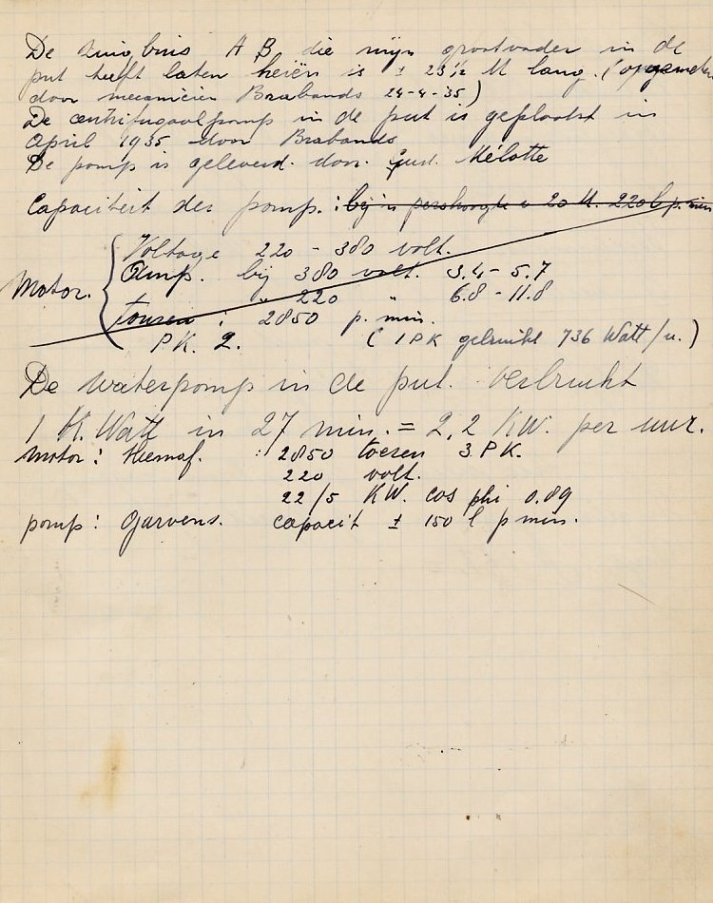 De zuigbuis A B, die mijn grootvader in de
put heeft laten heiën is ± 23½ M lang. (opgemeten
door mecanicien Brabands 24-4-35)
De centrifugaalpomp in de put is geplaatst in
April 1935 door Brabands
De pomp is geleverd. door. Mélotte
Capaciteit der pomp. : bij 20 M. 220 l p. min
Motor. { Voltage 220 - 380 volt.
Amp. bij 380 volt. 3.4 - 5.7
" 220 " 6.8 - 11.8
toeren : 2850 p. min.
P.K. 2. ( 1 PK gebruikt 736 Watt/u.)
De waterpomp in de put. verbruikt
1 K. Watt in 27 min. = 2,2 KW. per uur.
Motor: : 2850 toeren 3 P.K.
220 volt.
22/5 KW. cos phi 0.89
pomp: Garvens. capacit ± 150 l p min.